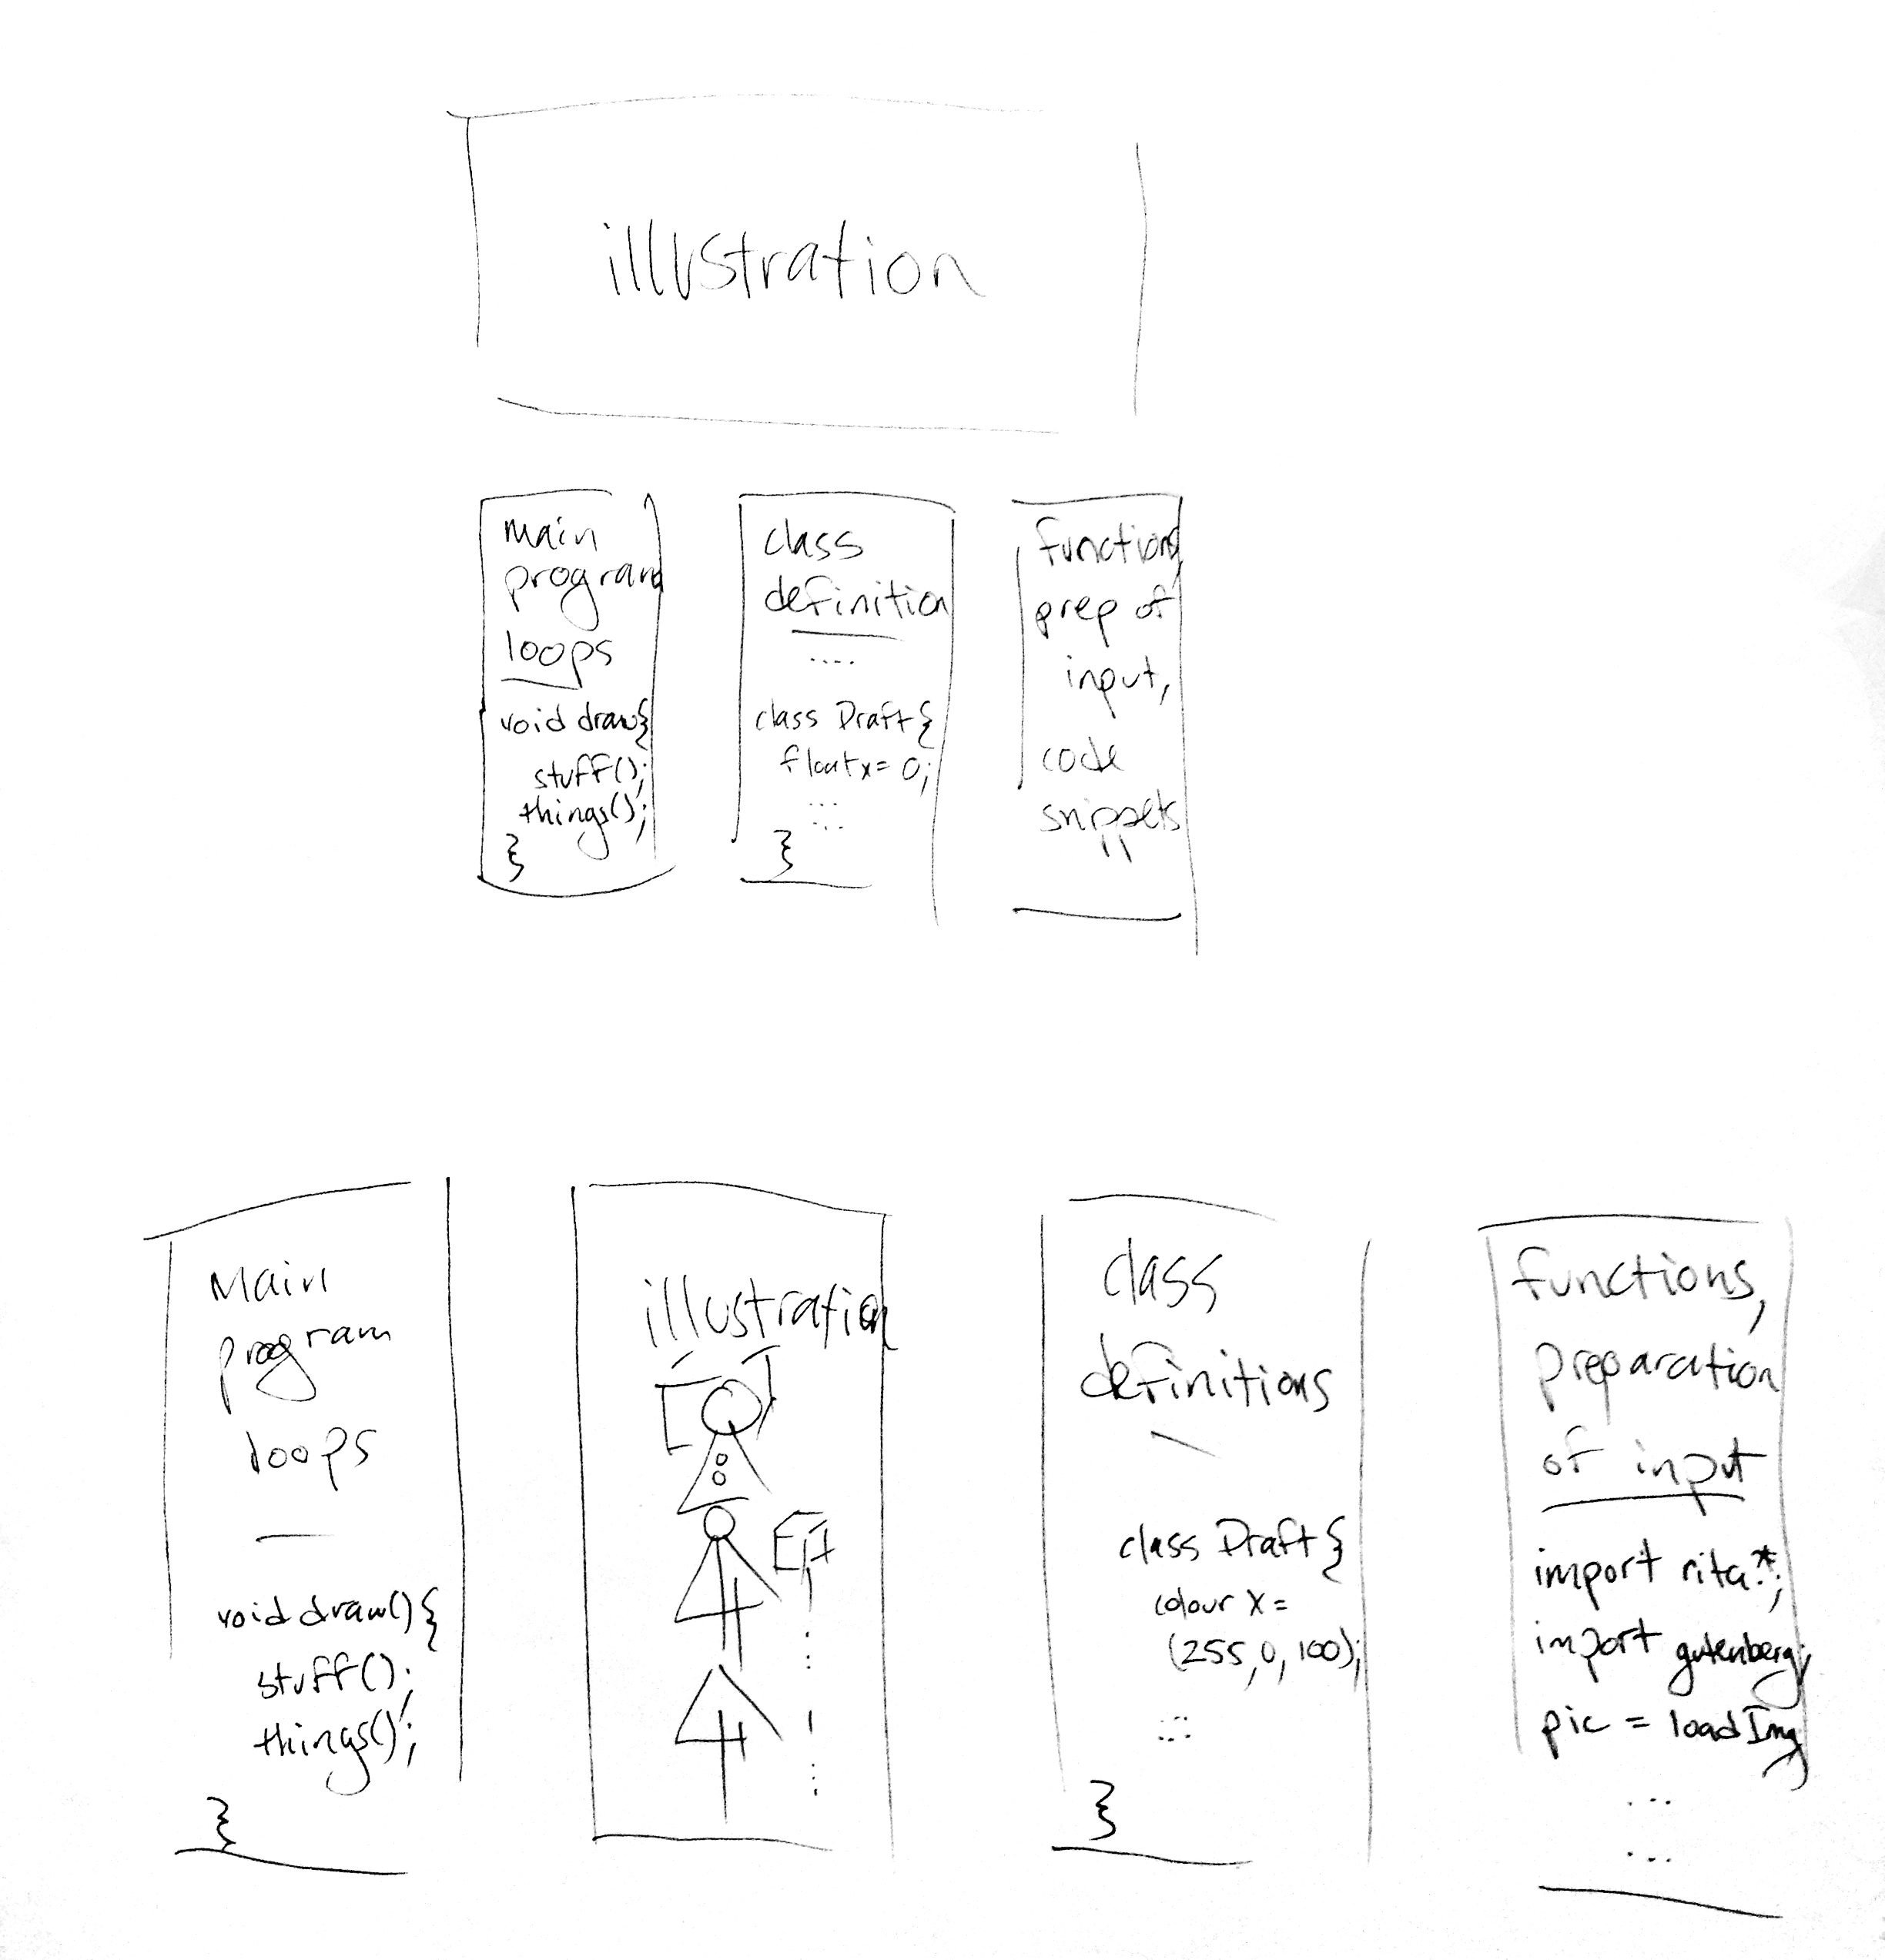 illustration
main
program
loops
void draw{
stuff();
things();
}
class
definition
....
class Draft{
float x = 0;
...
...
}
functions,
prep of
input,
code
snippets
Main
program
loops
void draw() {
stuff();
things();
}
illustration
class
definitions
class Draft {
colour x =
(255, 0, 100);
}
functions,
preparation
of input
import rita.*;
import gutenberg;
pic = loadImg
...
...